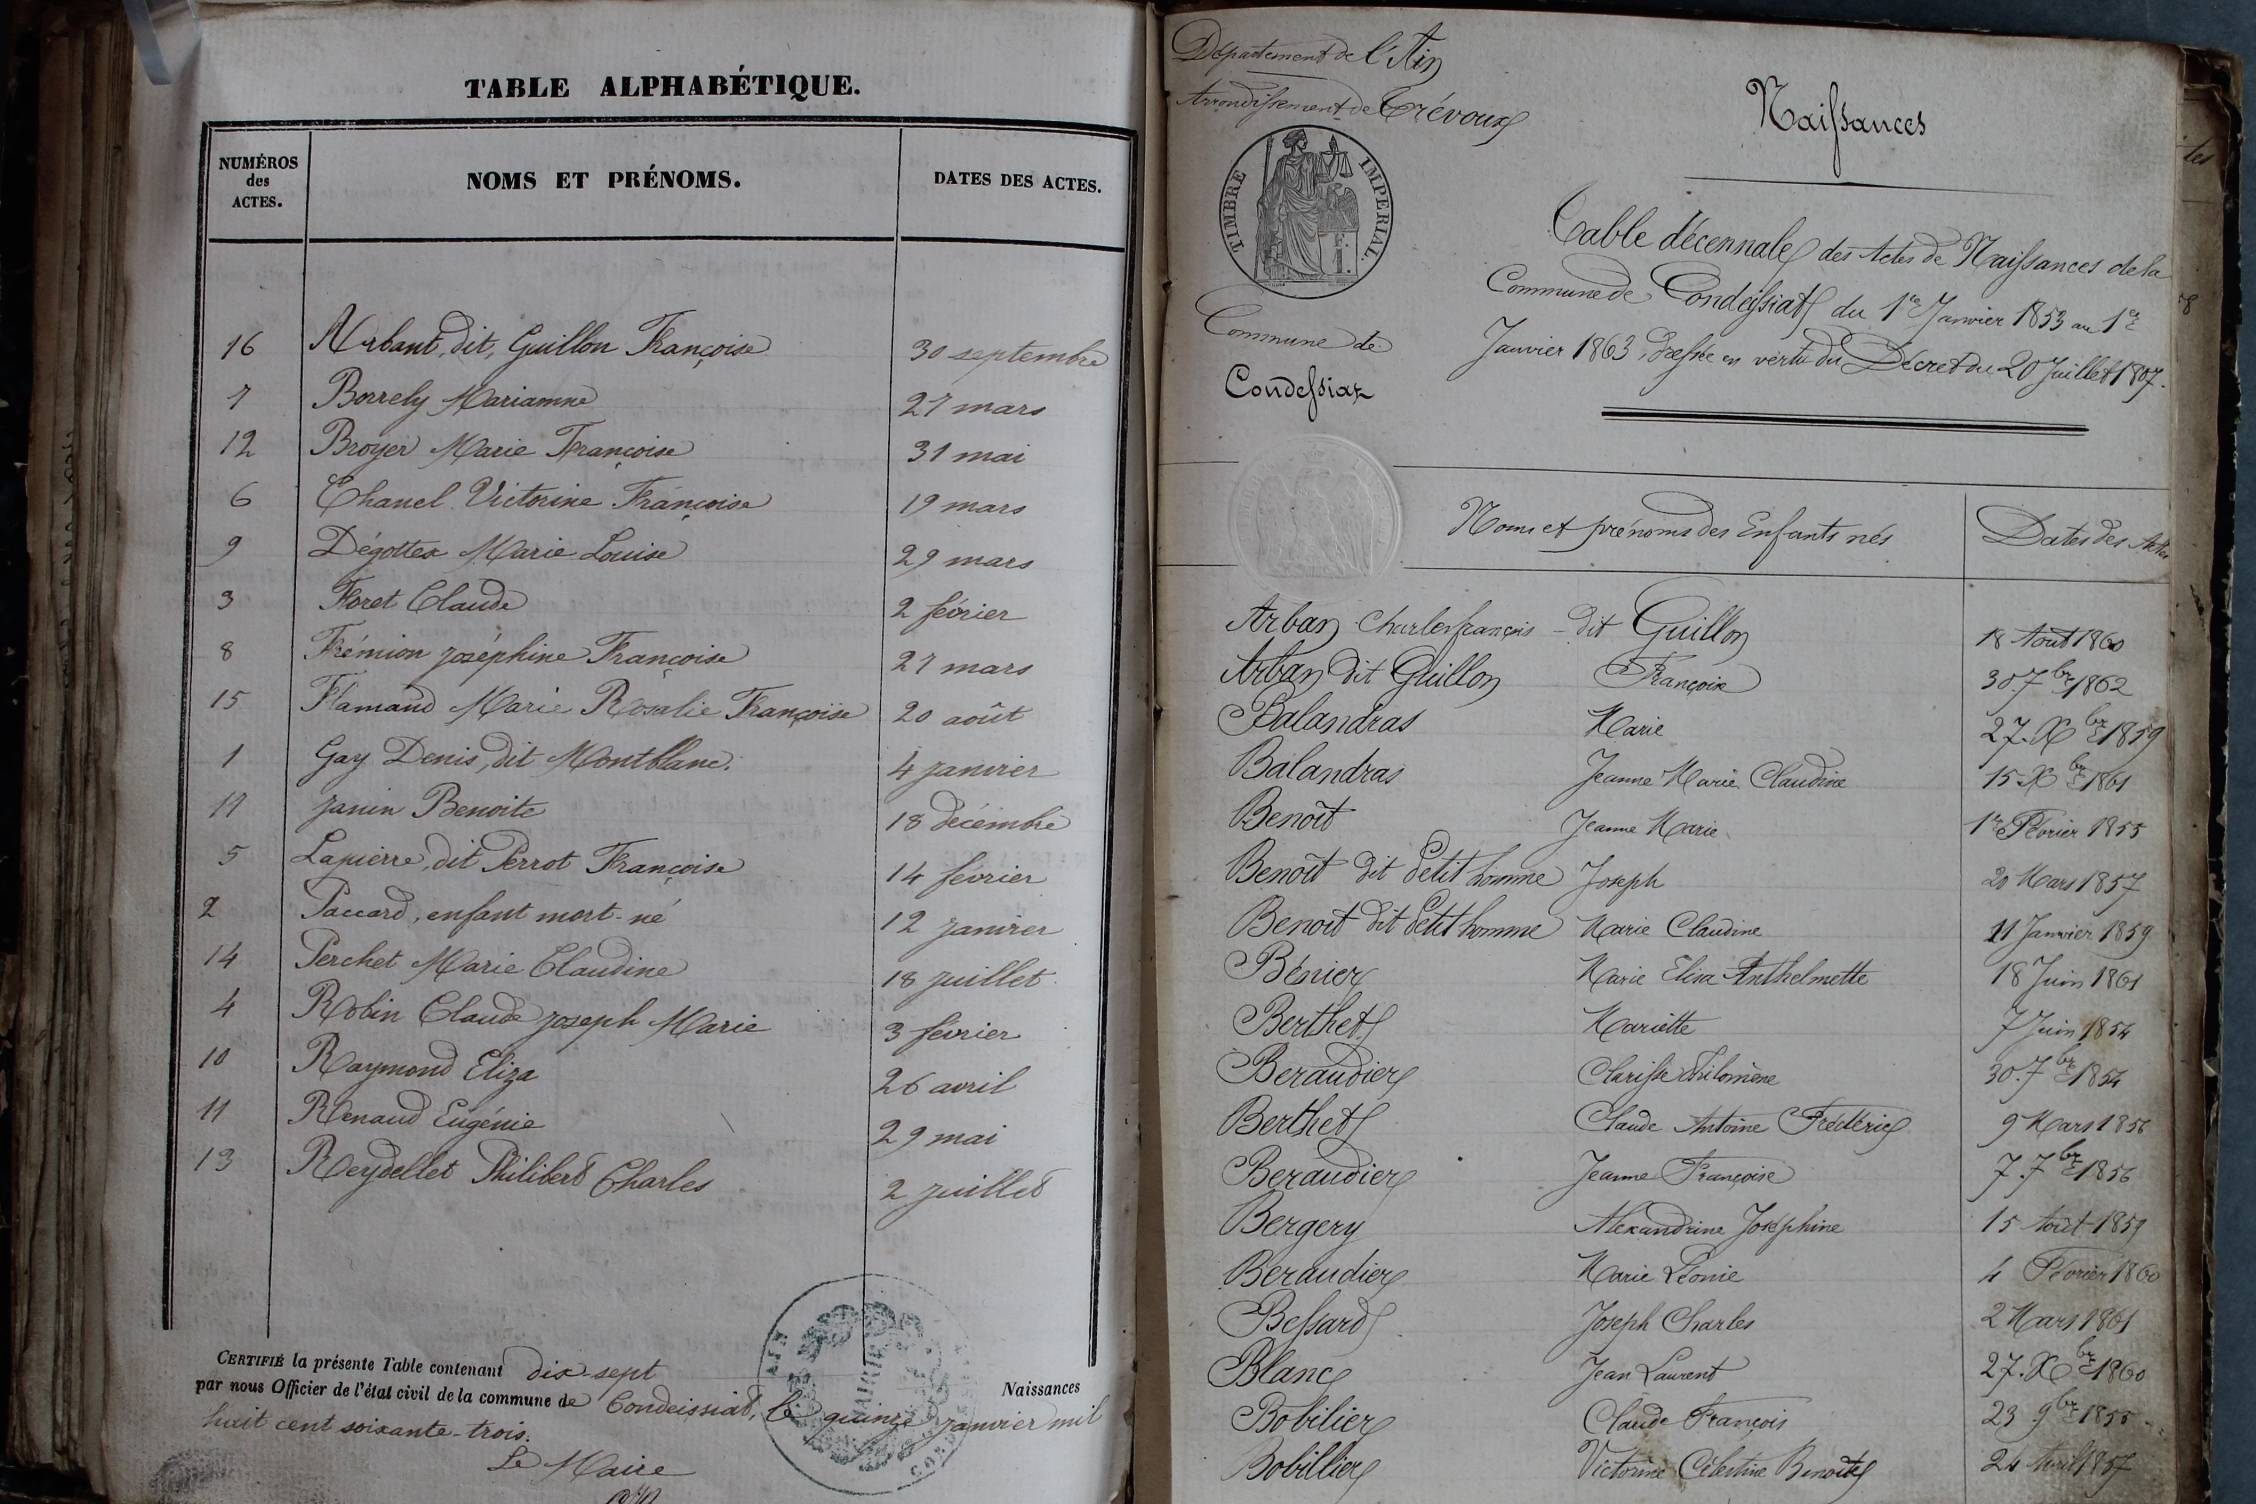 TABLE ALPHABÉTIQUE.
NUMÉROS des ACTES. NOMS ET PRÉNOMS. DATES DES ACTES.
16 Arbant, dit, Guillon Françoise 30 septembre
7 Borrely Mariamne 27 mars
12 Broyer Marie Françoise 31 mai
6 Chanel Victorine Françoise 19 mars
9 Dégottex Marie Louise 29 mars
3 Foret Claude 2 février
8 Frémion Joséphine Françoise 27 mars
15 Flamand Marie Rosalie Françoise 20 août
1 Gay Denis, dit Montblanc. 4 janvier
17 Janin Benoite 18 décembre
5 Lapierre, dit Perrot Françoise 14 février
2 Paccard, enfant mort-né 12 janvier
14 Perchet Marie Claudine 18 juillet
4 Robin Claude Joseph Marie 3 février
10 Raymond Eliza 26 avril
11 Renaud Eugénie 29 mai
13 Reydellet Philibert Charles 2 juillet
CERTIFIÉ la présente Table contenant dix-sept Naissances
par nous Officier de l'état civil de la commune de Condeissiat, le quinze janvier mil
huit cent soixante-trois.
Le Maire
AIN
MAIRIE
Département de l'Ain
Arrondissement de Trévoux
TIMBRE IMPERIAL.
1 f.
Commune de
Condessiat
Naissances
Table décennale des Actes de Naissances de la
Commune de Condeissiat du 1er Janvier 1853 au 1er
Janvier 1863, dressée en vertu du Décret du 20 Juillet 1807.
Noms et prénoms des Enfants nés Dates des Actes
Arban Charles françois - dit Guillon 18 Aout 1860
Arban dit Guillon Françoise 30. 7bre 1862
Balandras Marie 27. Xbre 1859
Balandras Jeanne Marie Claudine 15 Xbre 1861
Benoît Jeanne Marie 1er Février 1855
Benoît dit Petit homme Joseph 20 Mars 1857
Benoit dit Petit homme Marie Claudine 11 Janvier 1859
Bénier Marie Elisa Anthelmette 18 Juin 1861
Berthet Mariette 7 Juin 1854
Beraudier Clarisse Philomène 30. 7bre 1854
Berthet Claude Antoine Frédéric 9 Mars 1856
Beraudier Jeanne Françoise 7. 7bre 1856
Bergery Alexandrine Joséphine 15 Août 1859
Beraudier Marie Léonie 4 Février 1860
Bessard Joseph Charles 2 Mars 1861
Blanc Jean Laurent 27. Xbre 1860
Bobilier Claude François 23 9bre 1855
Bobillier Victorine Célestine Benoite 24 Avril 1857